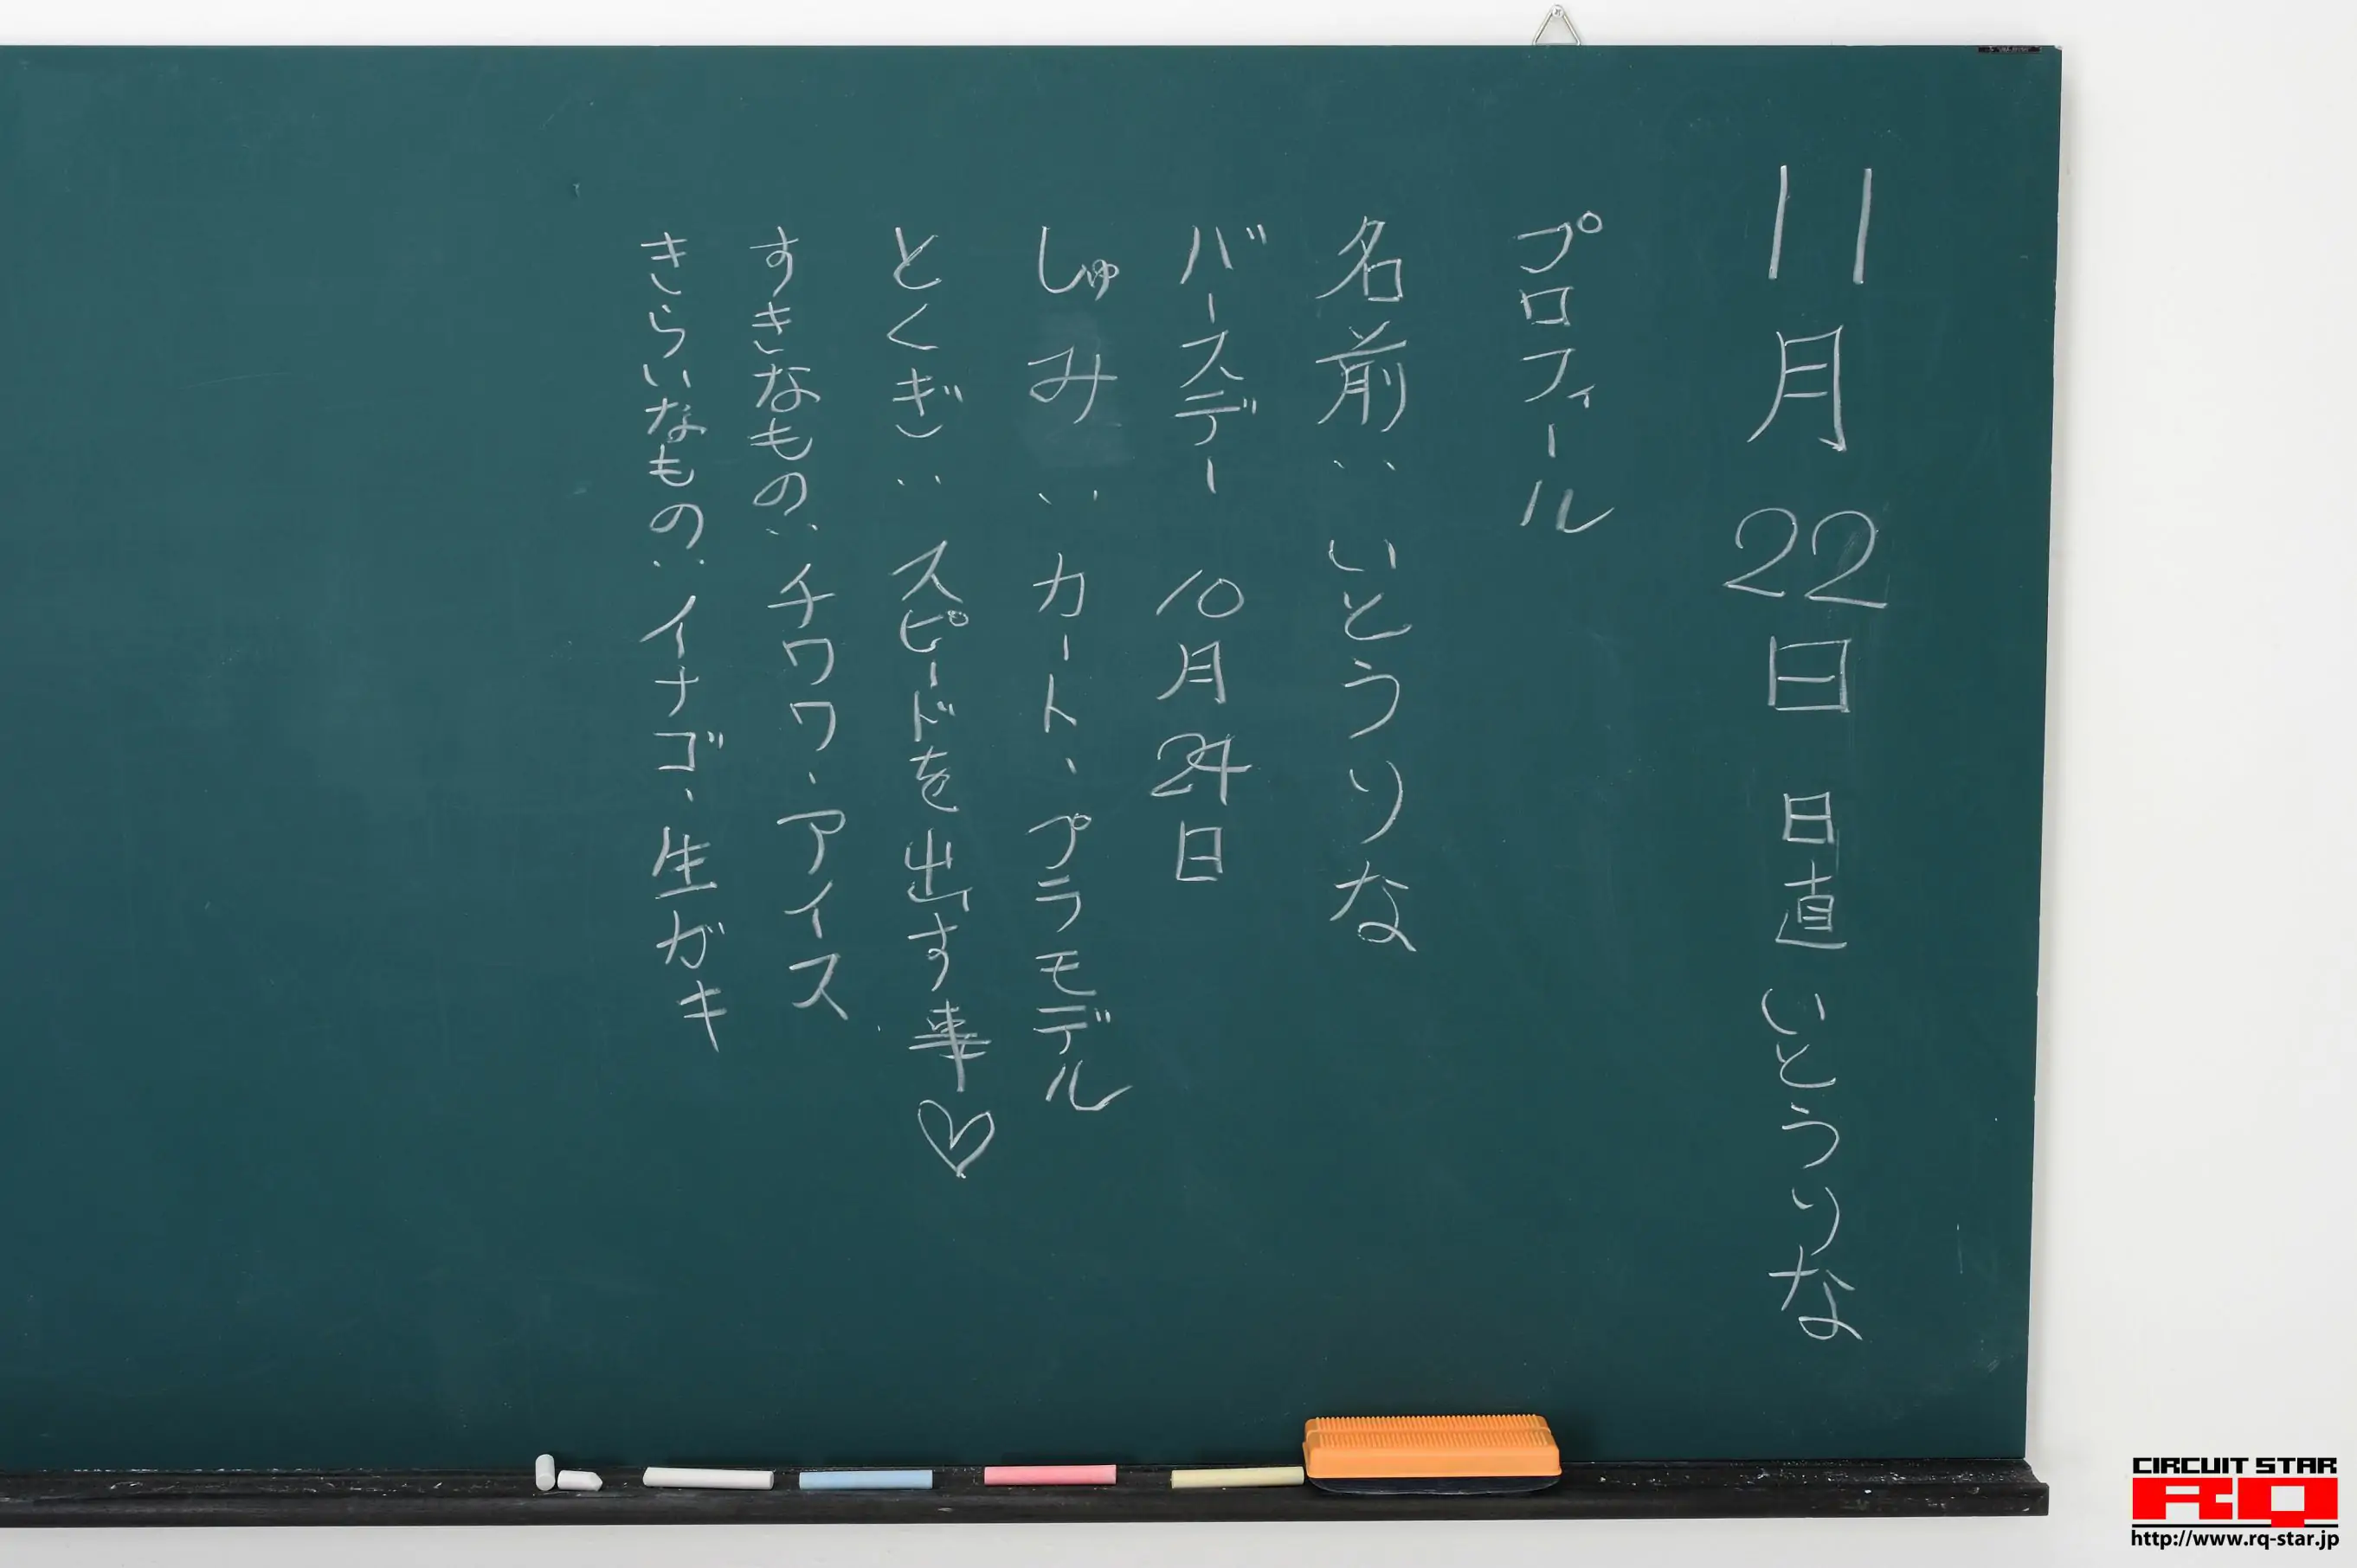 11月22日 日直 いとうりな
プロフィール
名前: いとうりな
バースデー 10月24日
しゅみ: カート、プラモデル
とくぎ: スピードを出す事♡
すきなもの: チワワ、アイス
きらいなもの: イナゴ、生ガキ
CIRCUIT STAR
RQ
http://www.rq-star.jp